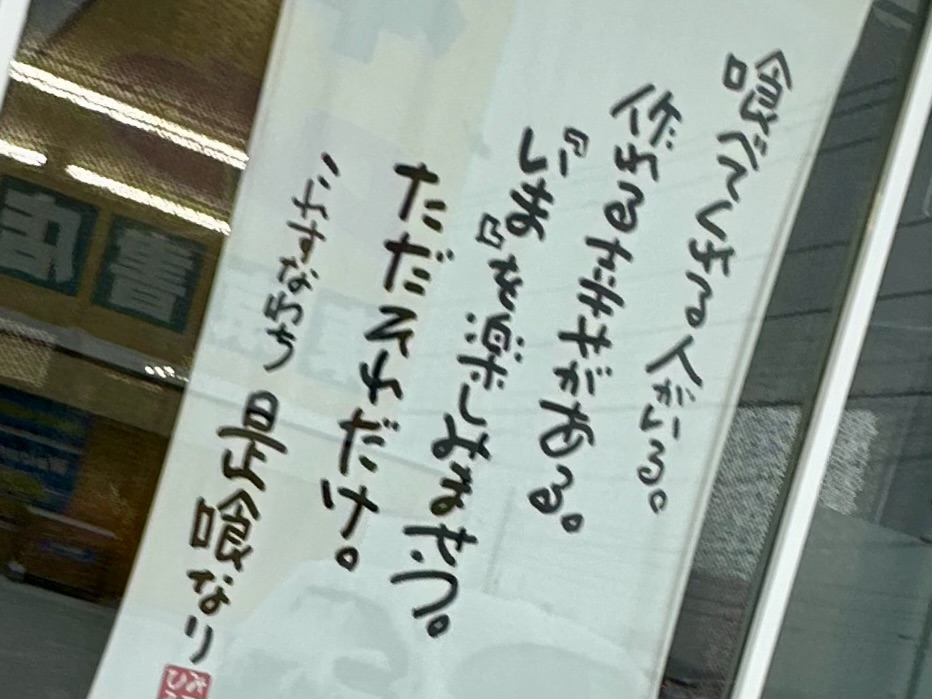 喰べてくれる人がいる。
作れる幸せがある。
『いま』を楽しみませう。
ただそれだけ。
これすなわち 是喰なり